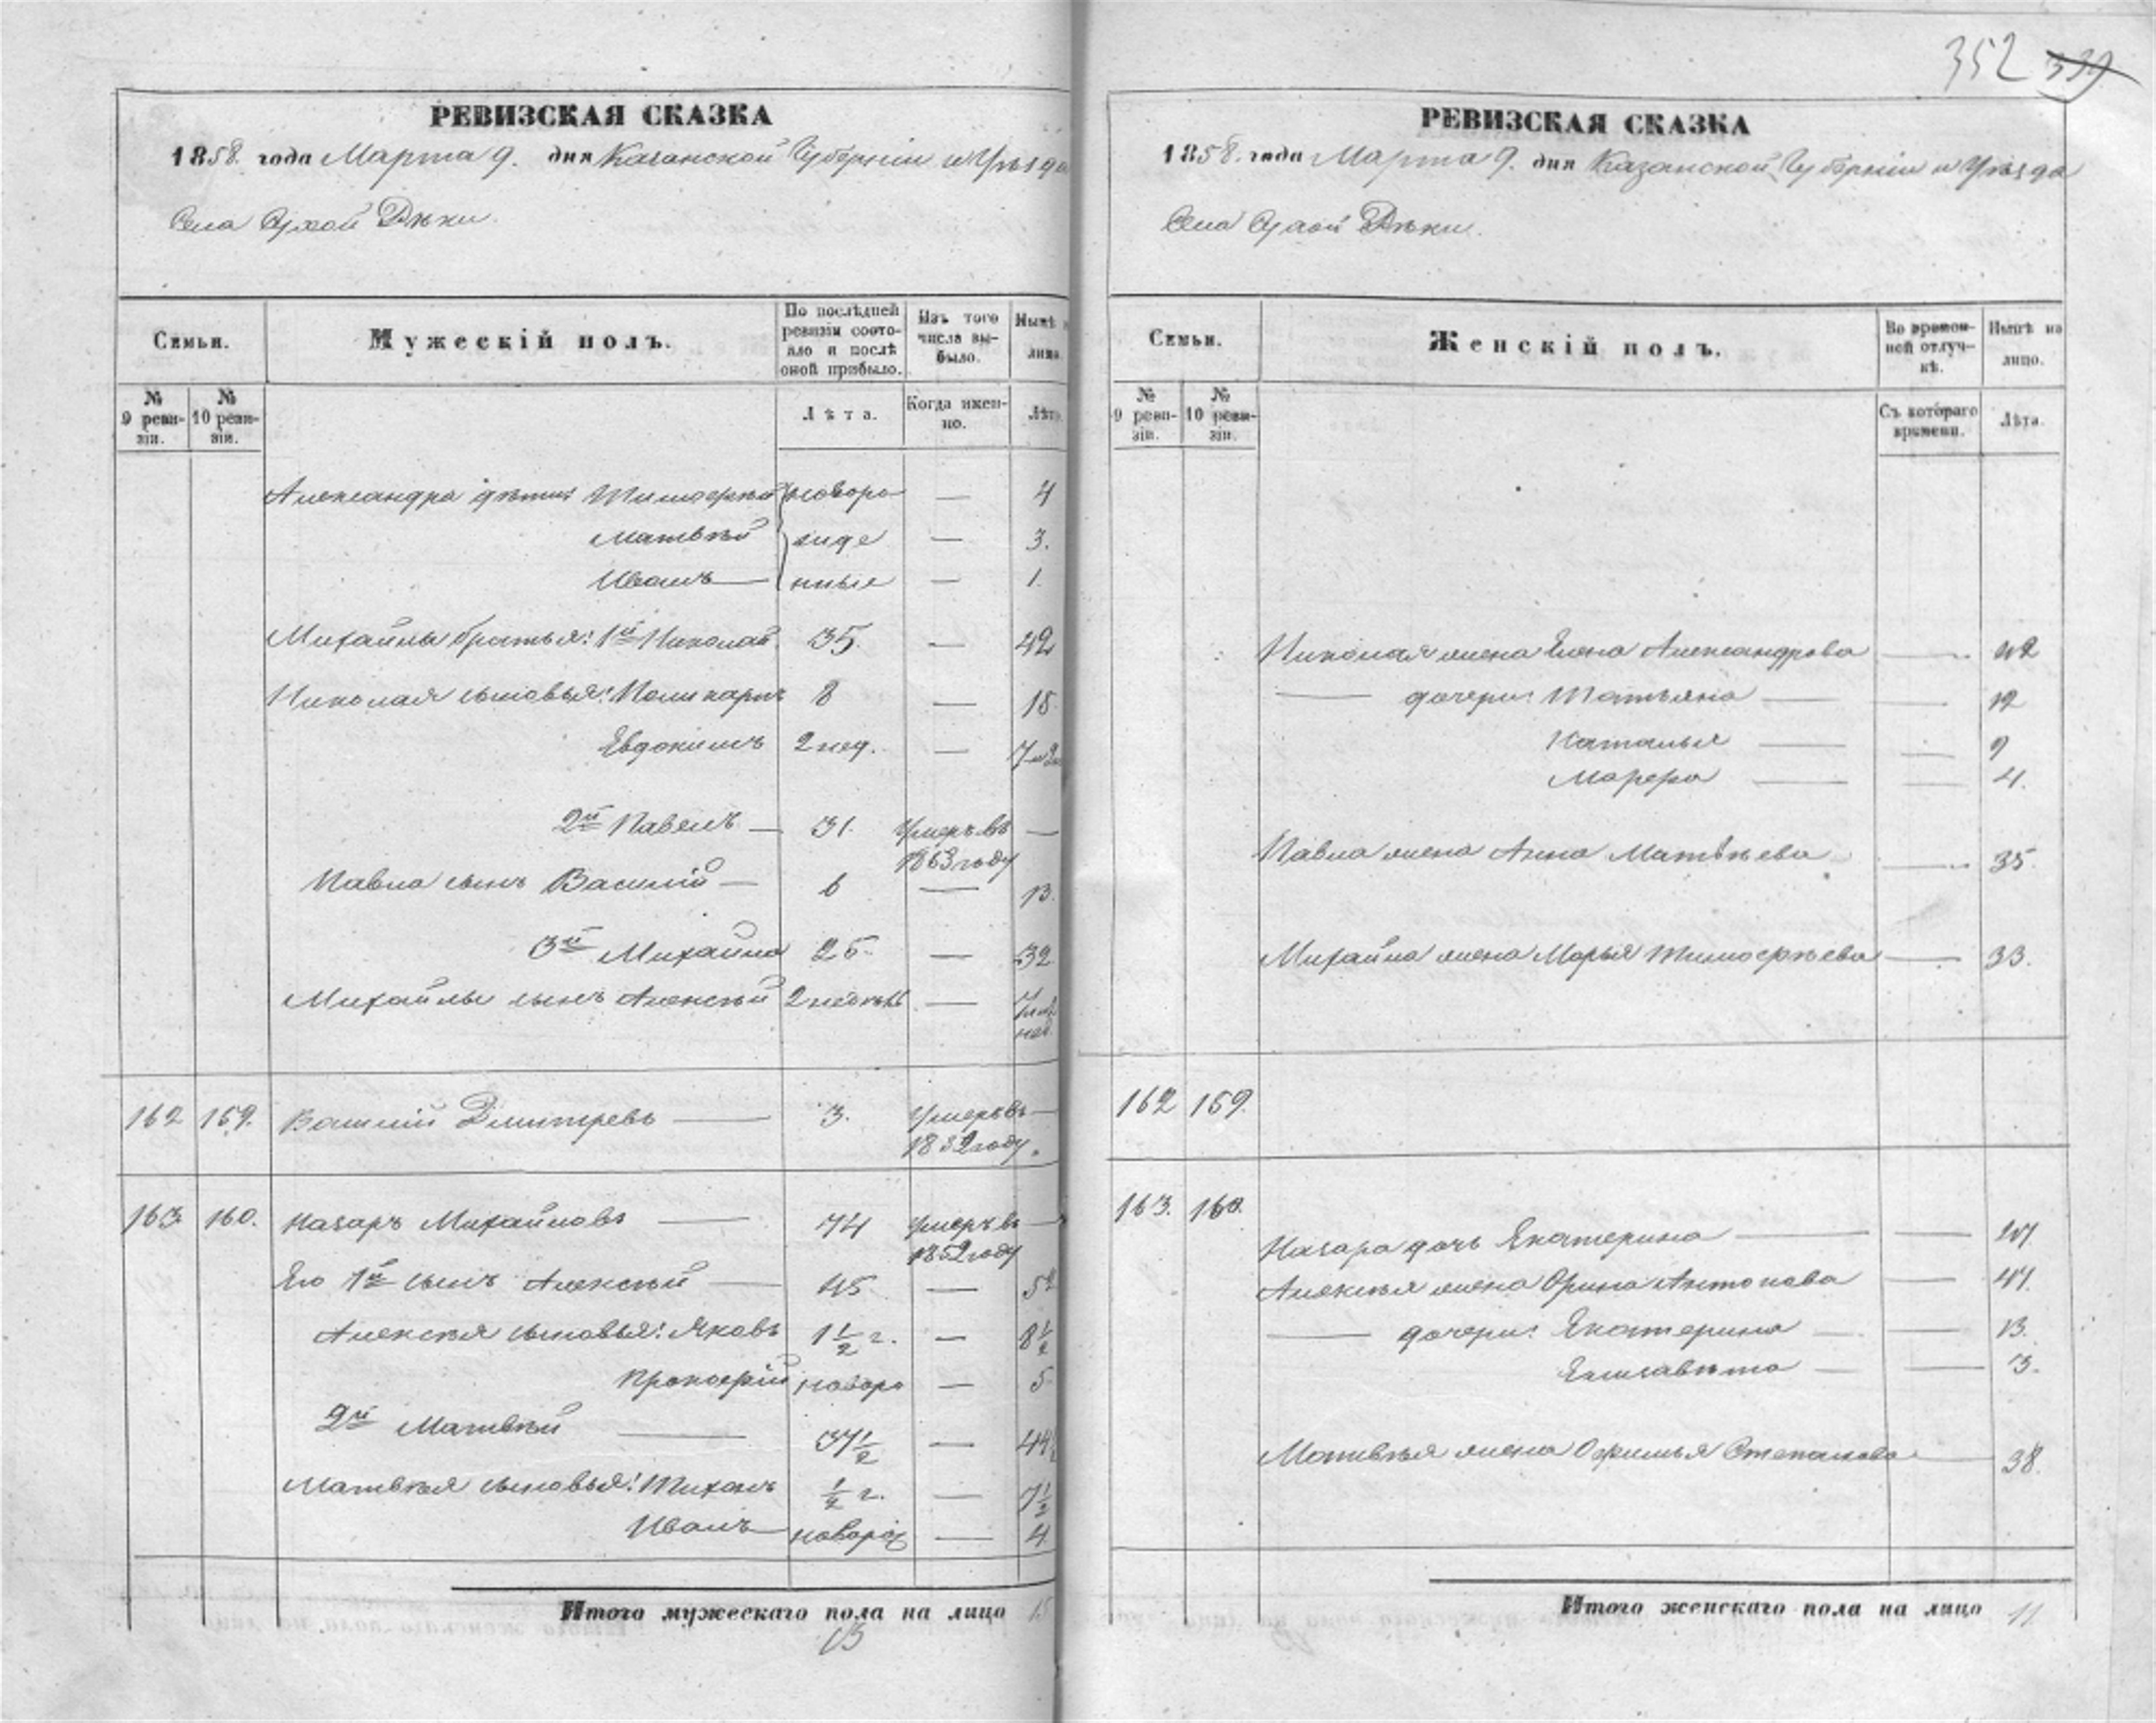 352 339
РЕВИЗСКАЯ СКАЗКА
1858. года Марта 9. дня Казанской Губерніи и Уѣзда
Села Сухой Рѣки.
Семьи.
Мужескій полъ.
По послѣдней ревизіи состояло и послѣ оной прибыло.
Изъ того числа выбыло.
Нынѣ на лицо.
№ 9 ревизіи.
№ 10 ревизіи.
Лѣта.
Когда именно.
Лѣта
Александра дѣти: Тимофей новоро — 4
Матвѣй жде — 3.
Иванъ — нные — 1.
Михайлы братья: 1й Николай 35. — 42
Николая сыновья: Поликарпъ 8 — 15.
Евдокимъ 2 нед. — 7
2й Павелъ — 31. Умеръ въ —
1853 году
Павла сынъ Василій — 6 — 13.
3й Михайла 25 — 32
Михайлы сынъ Алексѣй 2 недѣль — 7
нед.
162 159. Василій Дмитревъ — 3. Умеръ въ —
1852 году.
163 160. Назаръ Михайловъ — 74 Умеръ въ —
1852 году
Его 1й сынъ Алексѣй — 45 — 52
Алексѣя сыновья: Яковъ 1 1/2 г. — 8 1/2
Прокофій новоро — 5
2й Матвѣй — 37 1/2 — 44 1/2
Матвѣя сыновья: Тихонъ 1/2 г. — 7 1/2
Иванъ — новорож — 4
Итого мужескаго пола на лицо 15
13
РЕВИЗСКАЯ СКАЗКА
1858. года Марта 9. дня Казанской Губерніи и Уѣзда
Села Сухой Рѣки.
Семьи.
Женскій полъ.
Во временной отлучкѣ.
Нынѣ на лицо.
№ 9 ревизіи.
№ 10 ревизіи.
Съ котораго времени.
Лѣта.
Николая жена Елена Александрова — 42
— дочери: Татьяна — — 12
Наталья — — 9
Марфа — — 4.
Павла жена Анна Матвѣева — 35.
Михайла жена Марья Тимофѣева — 33.
162 159.
163. 160.
Назара дочь Екатерина — — 47
Алексѣя жена Орина Антонова — 47.
— дочери: Екатерина — — 13.
Елизавѣта — — 3.
Матвѣя жена Офимья Степанова — 38.
Итого женскаго пола на лицо 11.